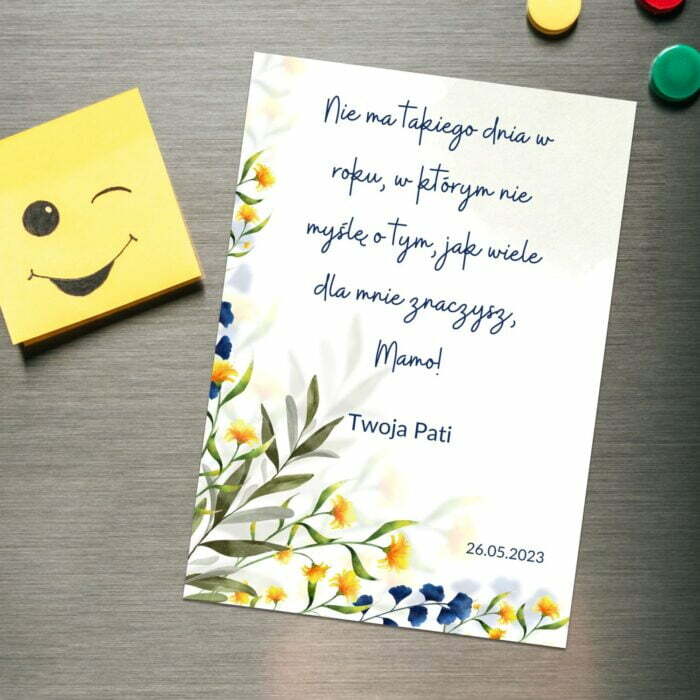 Nie ma takiego dnia w
roku, w którym nie
myślę o tym, jak wiele
dla mnie znaczysz,
Mamo!
Twoja Pati
26.05.2023